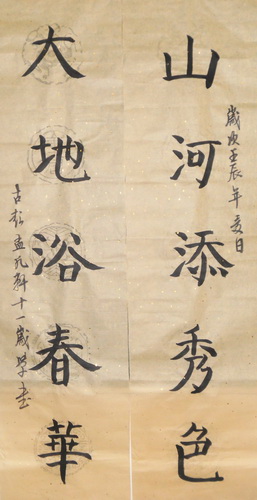 山河添秀色
歲次壬辰年夏日
大地浴春華
十一歲學書